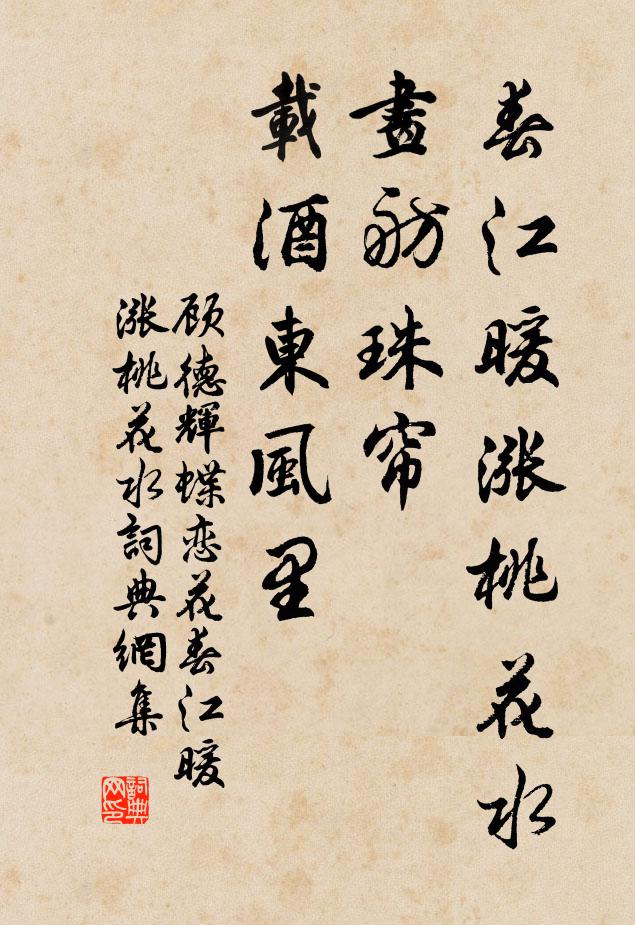 春江暖漲桃花水
畫舫珠帘
載酒東風里
顾德輝蝶恋花春江暖
漲桃花水詞典網集
詞典
网印